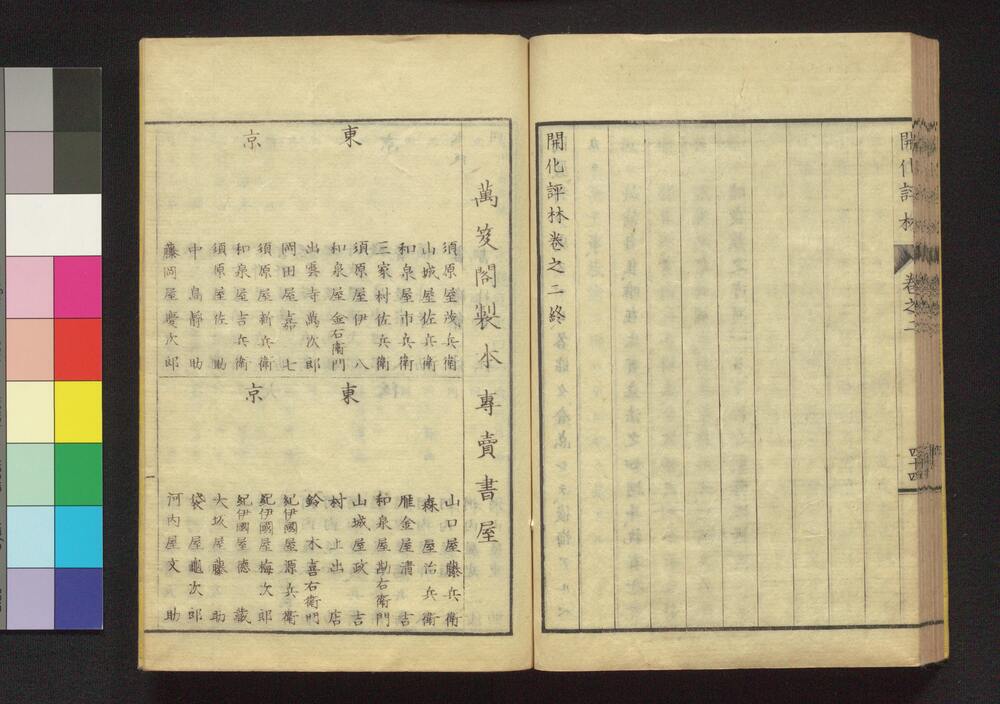 開化評林
卷之二
四十四
開化評林卷之二終
萬笈閣製本專賣書屋
東京
須原屋茂兵衛
山城屋佐兵衛
和泉屋市兵衛
三家村佐兵衛
須原屋伊八
和泉屋金右衛門
出雲寺萬次郎
岡田屋嘉七
須原屋新兵衛
和泉屋吉兵衛
須原屋佐助
中島靜助
藤岡屋慶次郎
東京
山口屋藤兵衛
森屋治兵衛
雁金屋清吉
和泉屋勘右衛門
山城屋政吉
村上出店
鈴木喜右衛門
紀伊國屋源兵衛
紀伊國屋梅次郎
紀伊國屋德藏
大坂屋藤助
袋屋龜次郎
河内屋文助